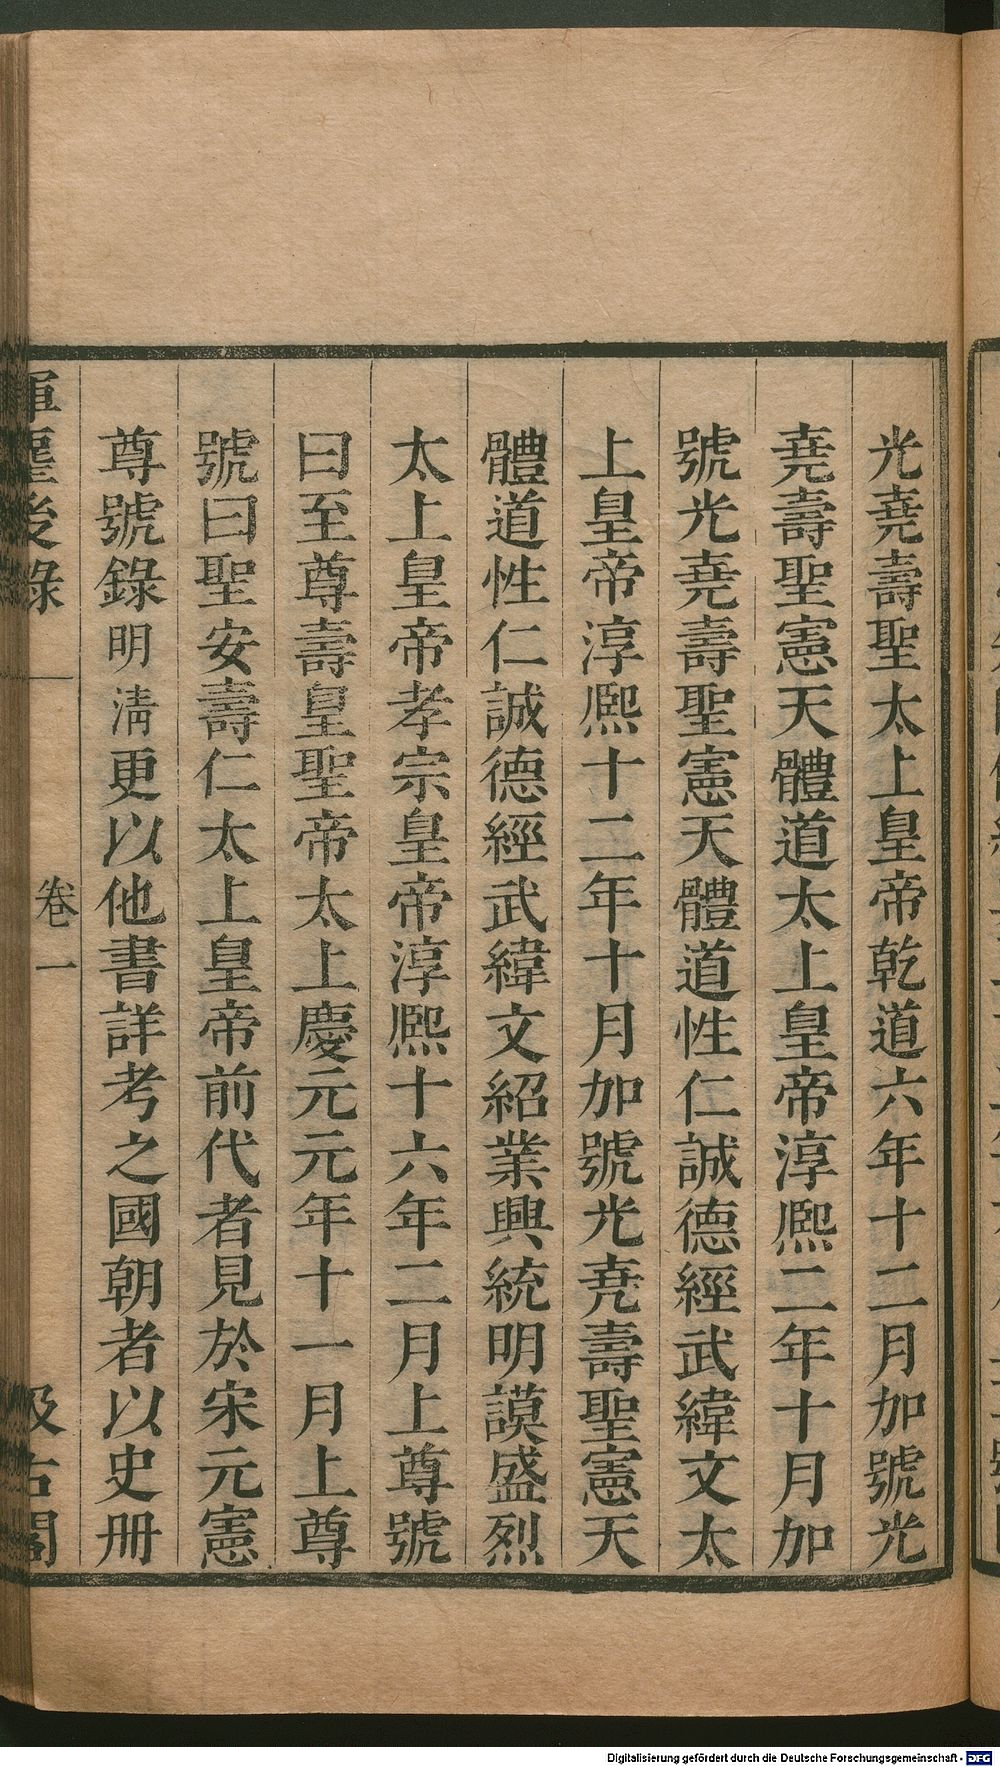 光堯壽聖太上皇帝乾道六年十二月加號光
堯壽聖憲天體道太上皇帝淳熙二年十月加
號光堯壽聖憲天體道性仁誠德經武緯文太
上皇帝淳熙十二年十月加號光堯壽聖憲天
體道性仁誠德經武緯文紹業興統明謨盛烈
太上皇帝孝宗皇帝淳熙十六年二月上尊號
曰至尊壽皇聖帝太上慶元元年十一月上尊
號曰聖安壽仁太上皇帝前代者見於宋元憲
尊號錄明清更以他書詳考之國朝者以史冊
後錄 卷一 汲古閣
Digitalisierung gefördert durch die Deutsche Forschungsgemeinschaft - DFG